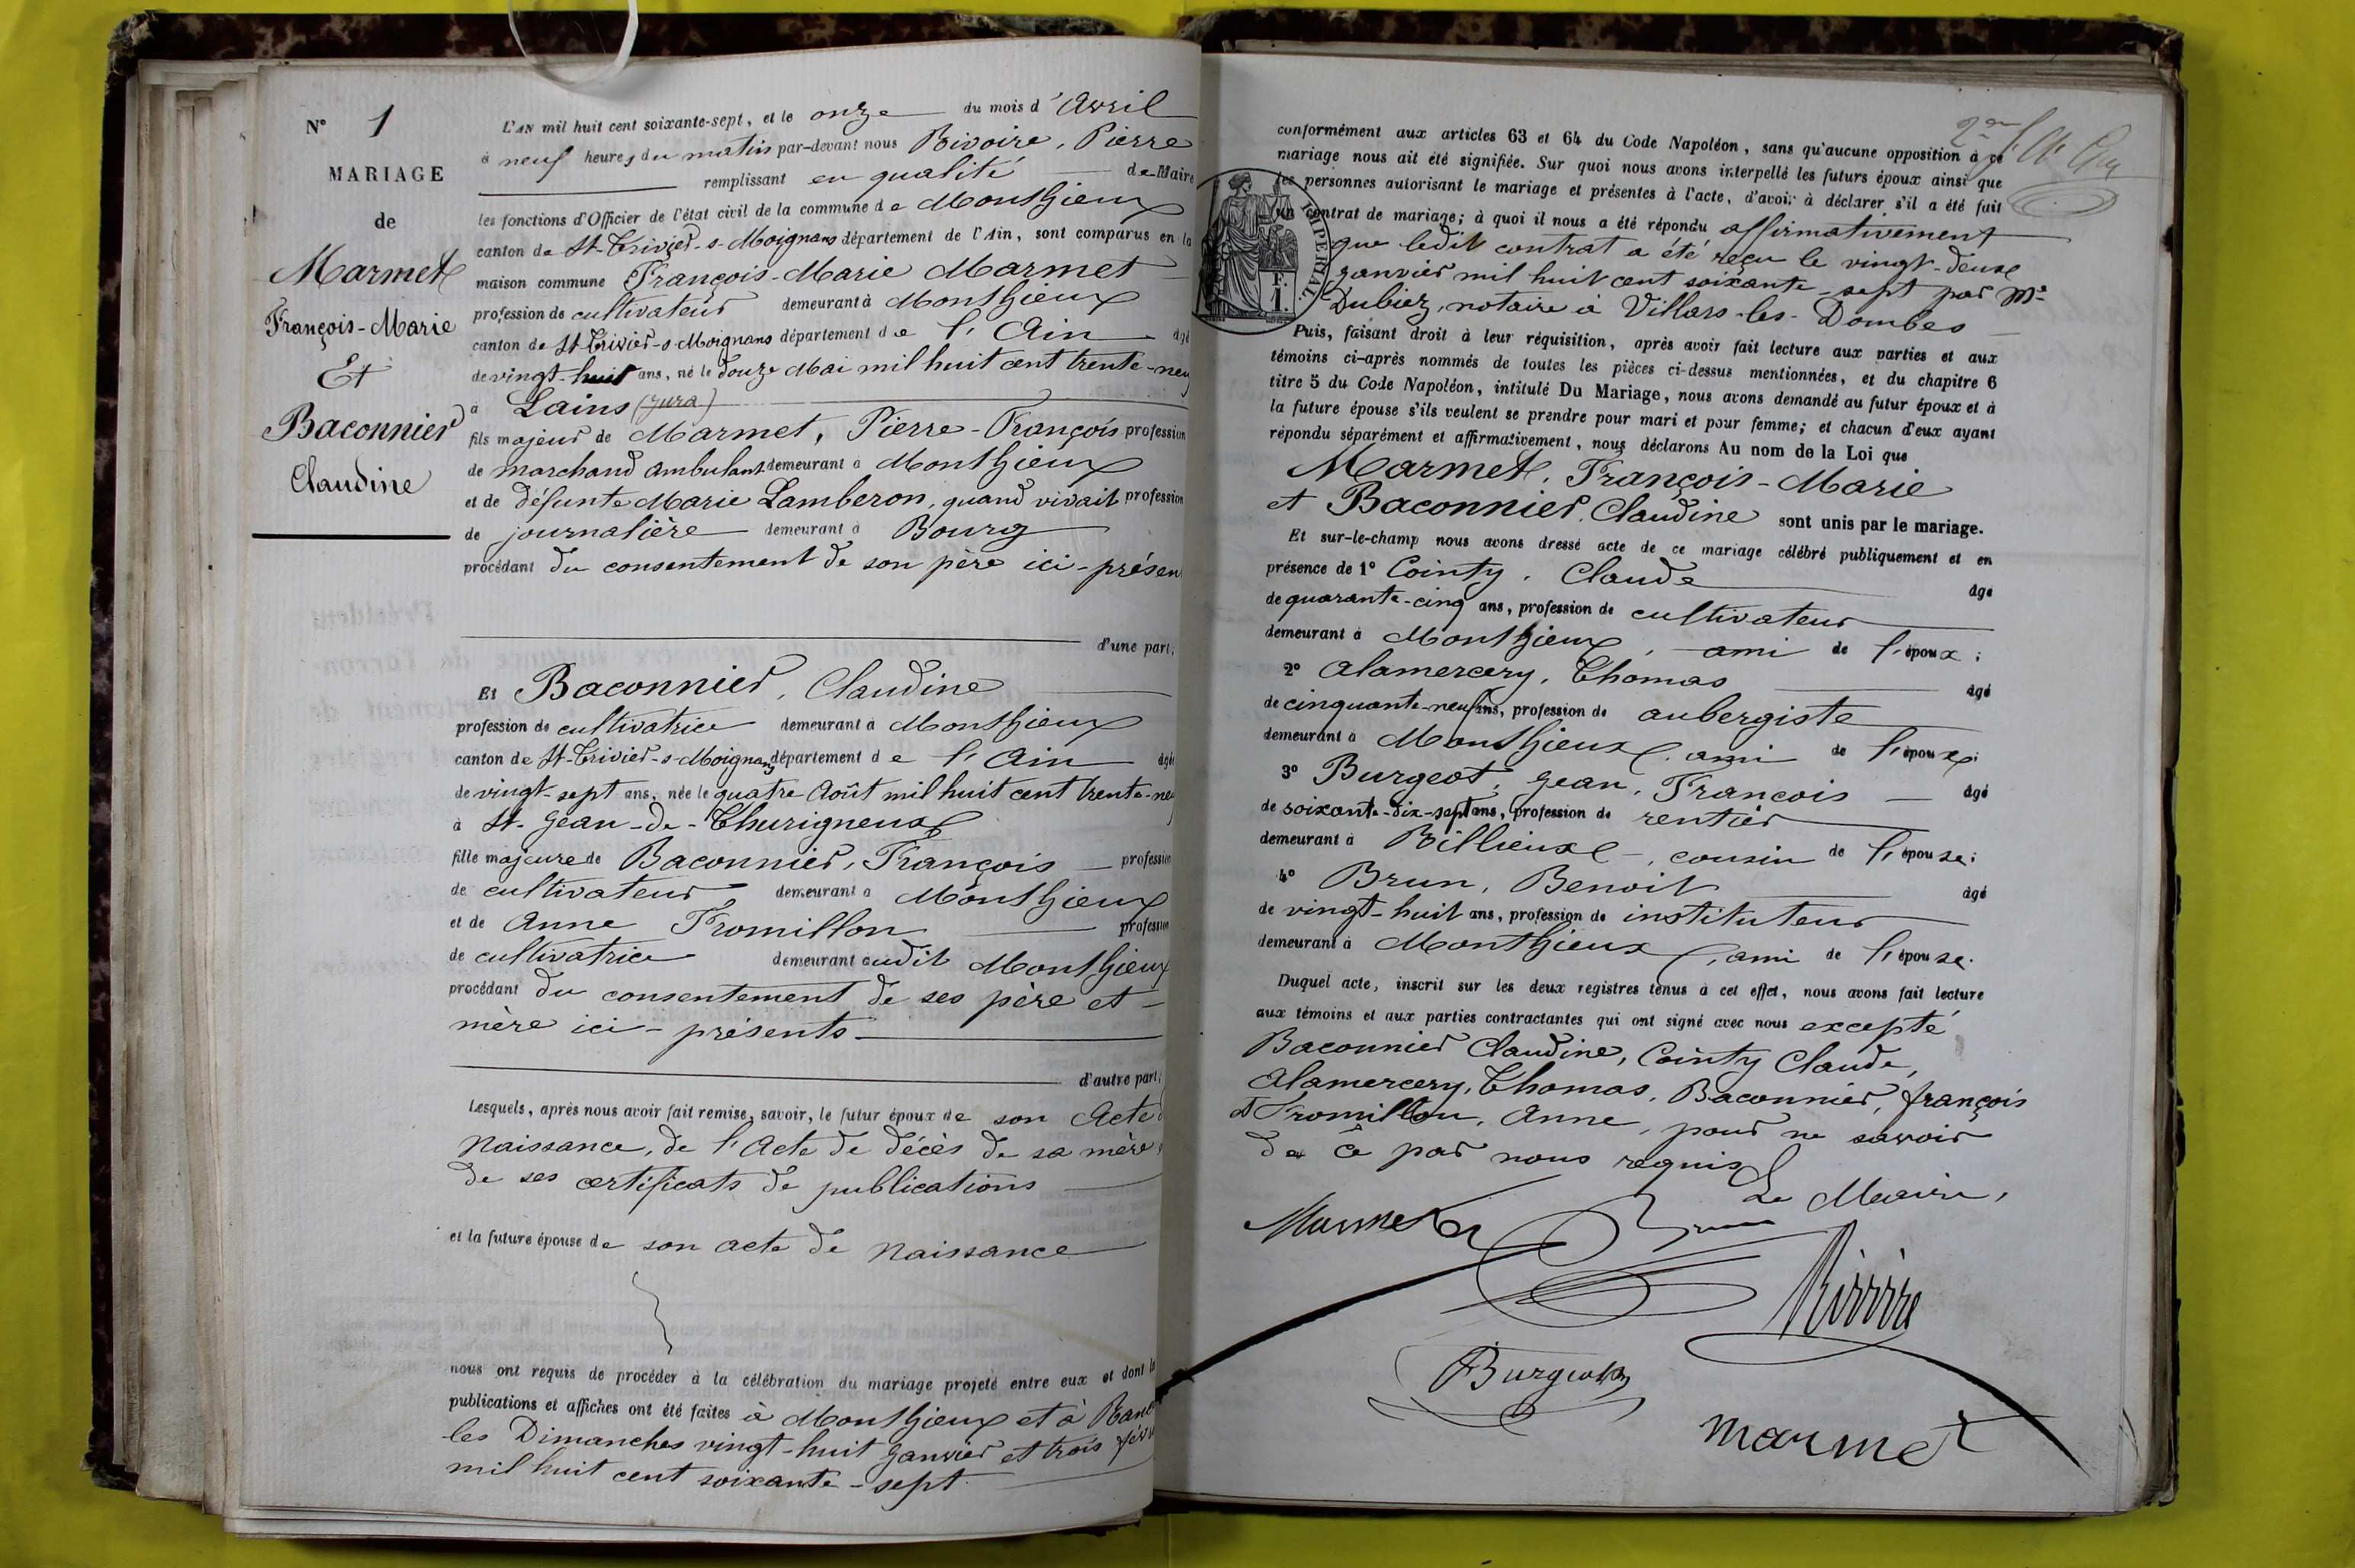 N° 1
MARIAGE
de
Marmet
François-Marie
Et
Baconnier
Claudine
L'AN mil huit cent soixante-sept, et le onze du mois d'Avril
à neuf heures du matin par-devant nous Rivoire, Pierre
remplissant en qualité de Maire
les fonctions d'Officier de l'état civil de la commune de Monthieux
canton de St-Trivier-s-Moignans département de l'Ain, sont comparus en la
maison commune François-Marie Marmet
profession de cultivateur demeurant à Monthieux
canton de St-Trivier-s-Moignans département de l'Ain âgé
de vingt-huit ans, né le douze Mai mil huit cent trente-neuf
à Lains (Jura)
fils majeur de Marmet, Pierre-François profession
de marchand ambulant demeurant à Monthieux
et de défunte Marie Lamberon, quand vivait profession
de journalière demeurant à Bourg
procédant du consentement de son père ici-présen
d'une part,
Et Baconnier, Claudine
profession de cultivatrice demeurant à Monthieux
canton de St-Trivier-s-Moignans département de l'Ain âgée
de vingt-sept ans, née le quatre Août mil huit cent trente-ne
à St-Jean-de-Thurigneux
fille majeure de Baconnier, François profession
de cultivateur demeurant à Monthieux
et de Anne Fromillon profession
de cultivatrice demeurant audit Monthieux
procédant du consentement de ses père et
mère ici-présents
d'autre part;
Lesquels, après nous avoir fait remise, savoir, le futur époux de son Acte
Naissance, de l'Acte de décès de sa mère
de ses certificats de publications
et la future épouse de son acte de Naissance
nous ont requis de procéder à la célébration du mariage projeté entre eux et dont le
publications et affiches ont été faites à Monthieux et à Ranc
les Dimanches vingt-huit Janvier et trois févr
mil huit cent soixante-sept
conformément aux articles 63 et 64 du Code Napoléon, sans qu'aucune opposition à ce
mariage nous ait été signifiée. Sur quoi nous avons interpellé les futurs époux ainsi que
les personnes autorisant le mariage et présentes à l'acte, d'avoir à déclarer s'il a été fait
un contrat de mariage; à quoi il nous a été répondu affirmativement
que ledit contrat a été reçu le vingt-deux
Janvier mil huit cent soixante-sept par Me
Dubiez, notaire à Villars-les-Dombes
IMPERIAL.
F.
1.
Puis, faisant droit à leur réquisition, après avoir fait lecture aux parties et aux
témoins ci-après nommés de toutes les pièces ci-dessus mentionnées, et du chapitre 6
titre 5 du Code Napoléon, intitulé Du Mariage, nous avons demandé au futur époux et à
la future épouse s'ils veulent se prendre pour mari et pour femme; et chacun d'eux ayant
répondu séparément et affirmativement, nous déclarons Au nom de la Loi que
Marmet, François-Marie
et Baconnier, Claudine sont unis par le mariage.
Et sur-le-champ nous avons dressé acte de ce mariage célébré publiquement et en
présence de 1° Cointy, Claude âgé
de quarante-cinq ans, profession de cultivateur
demeurant à Monthieux, ami de l'époux;
2° Alamercery, Thomas âgé
de cinquante-neuf ans, profession de aubergiste
demeurant à Monthieux, ami de l'époux;
3° Burgeot, Jean, François âgé
de soixante-dix-sept ans, profession de rentier
demeurant à Billieux, cousin de l'épouse;
4° Brun, Benoit âgé
de vingt-huit ans, profession de instituteur
demeurant à Monthieux, ami de l'épouse.
Duquel acte, inscrit sur les deux registres tenus à cet effet, nous avons fait lecture
aux témoins et aux parties contractantes qui ont signé avec nous excepté
Baconnier Claudine, Cointy Claude,
Alamercery, Thomas, Baconnier, françois
et Fromillon, Anne, pour ne savoir
de ce par nous requis
Le Maire,
Marmet
Brun
Rivoire
Burgeot
marmet